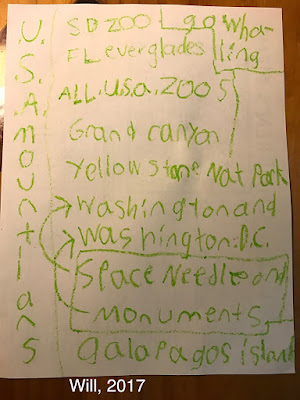 U.S.A. mountians
SD ZOO
go wha-
ling
FL everglades
ALL.U.S.a.ZOOS
Grand canyon
Yellowstone Nat Park
Washington and
Washington.D.C.
Space Needle and
monuments,
galapagos
Will, 2017